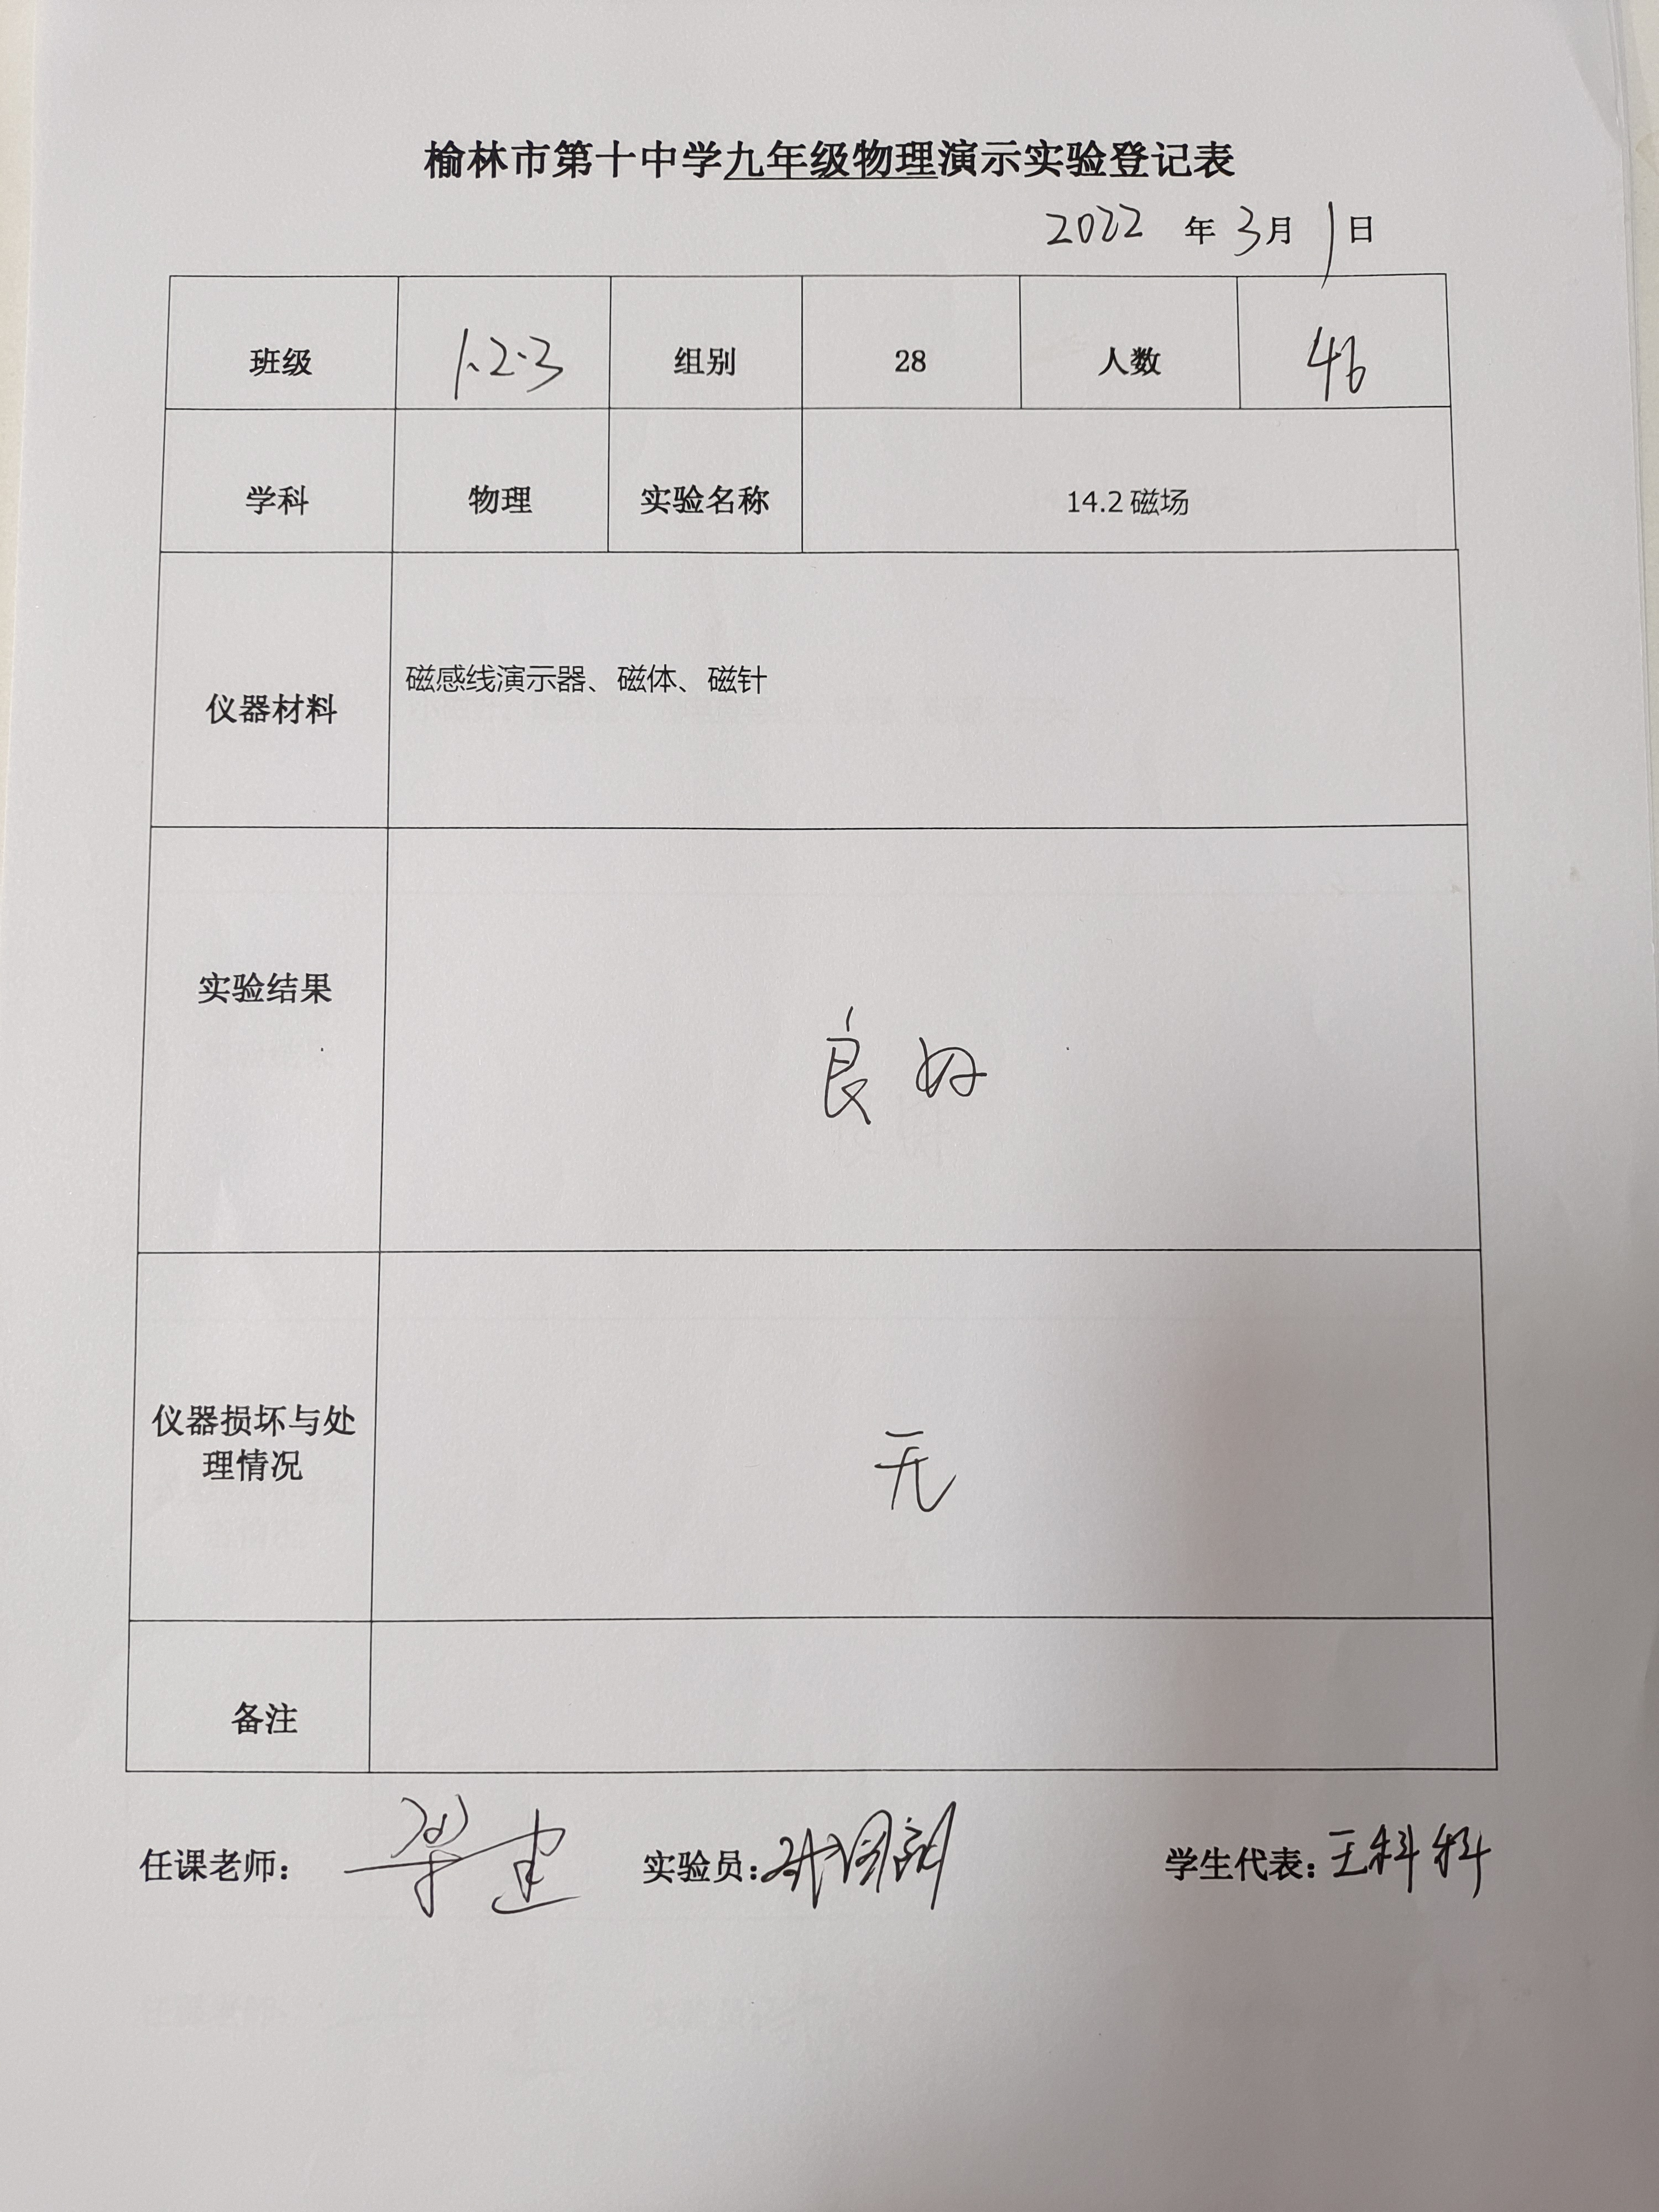 榆林市第十中学九年级物理演示实验登记表
2022 年 3月 1日
班级 1.2.3 组别 28 人数 46
学科 物理 实验名称 14.2 磁场
仪器材料 磁感线演示器、磁体、磁针
实验结果 良好
仪器损坏与处
理情况 无
备注
任课老师： 实验员： 学生代表：王科科